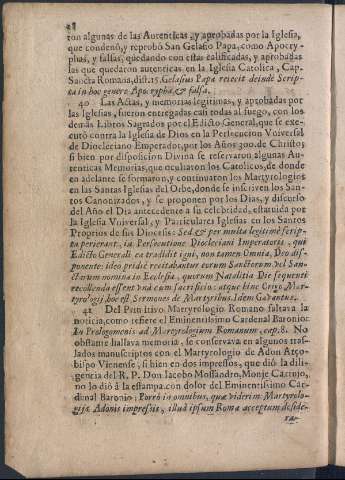 28
ron algunas de las Autenticas, y aprobadas por la Iglesia,
que condenò, y reprobò San Gelasio Papa, como Apocry-
phas, y falsas, quedando con estas calificadas, y aprobadas
las que quedaron autenticas en la Iglesia Catolica, Cap.
Sancta Romana, dist. 15. Gelasius Papa reiecit deinde Scrip-
ta in hoc genere Apocrypha, & falsa.
40 Las Actas, y memorias legitimas, y aprobadas por
las Iglesias, fueron entregadas casi todas al fuego, con los
demàs Libros Sagrados por el Edicto General, que se exe-
cutò contra la Iglesia de Dios en la Persecucion Vniversal
de Diocleciano Emperador, por los Años 300. de Christo;
si bien por disposicion Divina se reservaron algunas Au-
tenticas Memorias, que ocultaron los Catolicos, de donde
en adelante se formaron, y continuaron los Martyrologios
en las Santas Iglesias del Orbe, donde se inscriven los San-
tos Canonizados, y se proponen por los Dias, y discurso
del Año el Dia antecedente à su celebridad, estatuida por
la Iglesia Vniversal, y Particulares Iglesias en los Santos
Proprios de sus Diocesis: Sed & per multa legitimè scrip-
ta perierant, in Persecutione Diocleciani Imperatoris, qui
Edicto Generali ea tradidit igni, non tamen Omnia, Deo dis-
ponente: ideo pridiè recitabantur eorum Sanctorum vel San-
ctarum nomina in Ecclesia, quorum Natalitia Die sequenti
recollenda essent una cum sacrificio: atque hinc Origo Mar-
tyrologij, hoc est Sermones de Martyribus. Idem Gavantus.
41 Del Primitivo Martyrologio Romano faltava la
noticia, como refiere el Eminentissimo Cardenal Baronio:
In Prolegomenis ad Martyrologium Romanum, cap. 8. No
obstante hallava memoria, se conservava en algunos tras-
lados manuscriptos con el Martyrologio de Adon Arço-
bispo Vienense, si bien en dos impressos, que diò la dili-
gencia del R. P. Don Jacobo Mossandro, Monje Cartujo,
no lo diò à la estampa, con dolor del Eminentissimo Car-
denal Baronio: Porrò in omnibus, quæ viderim Martyrolo-
gijs Adonis impressis, illud ipsum Romæ acceptum deside-
ra-